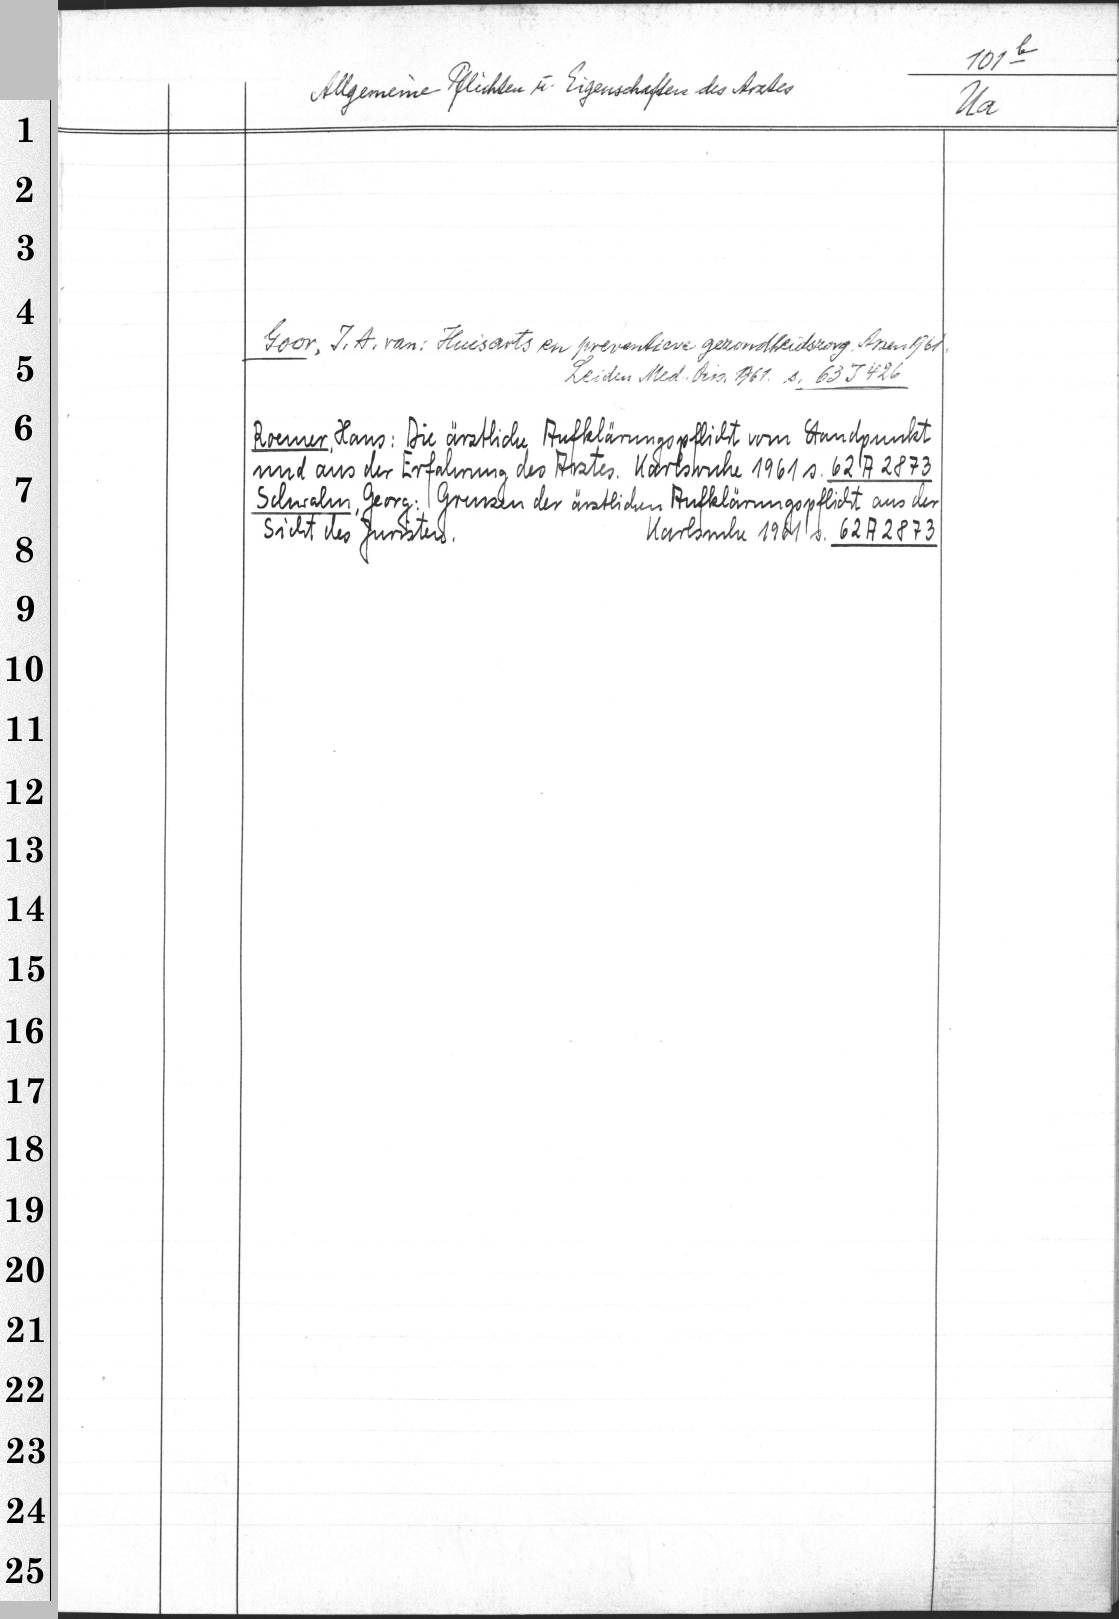 101 b
Allgemeine Pflichten u. Eigenschaften des Arztes
Ua
Goor, J. A. van: Huisarts en preventieve gezondheidszorg. Assen 1961.
Leiden Med. Diss. 1961. s. 63 J 426
Roemer, Hans: Die ärztliche Aufklärungspflicht vom Standpunkt
und aus der Erfahrung des Arztes. Karlsruhe 1961 s. 62 A 2873
Schwalm, Georg: Grenzen der ärztlichen Aufklärungspflicht aus der
Sicht des Juristen. Karlsruhe 1961 s. 62 A 2873
1
2
3
4
5
6
7
8
9
10
11
12
13
14
15
16
17
18
19
20
21
22
23
24
25